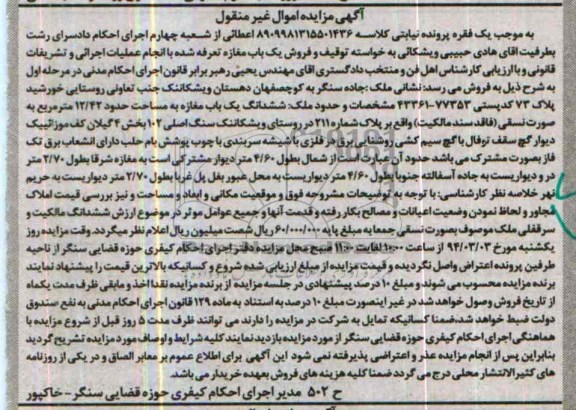 آگهی مزایده اموال غیر منقول
به موجب یک فقره پرونده نیابتی کلاسه ۸۹۰۹۹۸۱۳۱۵۵۰۱۴۳۶ اعطائی از شعبه چهارم اجرای احکام دادسرای رشت
بطرفیت اقای هادی حبیبی ویشکائی به خواسته توقیف و فروش یک باب مغازه تعرفه شده با انجام عملیات اجرائی و تشریفات
قانونی و با ارزیابی کارشناس اهل فن و منتخب دادگستری اقای مهندس یحیی رهبر برابر قانون اجرای احکام مدنی در مرحله اول
به شرح ذیل به فروش می رسد: نشانی ملک: جاده سنگر به کوچصفهان دهستان ویشکاننک جنب تعاونی روستایی خورشید
پلاک ۷۳ کدپستی ۷۷۳۵۳-۴۳۳۶۱ مشخصات و حدود ملک: ششدانگ یک باب مغازه به مساحت حدود ۱۲/۴۲ مترمربع به
صورت نسقی (فاقد سند مالکیت) واقع بر پلاک شماره ۲۱۱ در روستای ویشکاننک سنگ اصلی ۱۰۲ بخش ۴ گیلان کف موزائیک
دیوار گچ سقف توفال با گچ سیم کشی روشنایی برق در فلزی با شیشه سربندی با چوب پوشش بام حلب دارای انشعاب برق تک
فاز بصورت مشترک می باشد حدود آن عبارت است از شمال بطول ۴/۶۰ متر دیوار مشترکی است به مغازه شرقا بطول ۲/۷۰ متر
در و دیواریست به جاده آسفالته جنوبا بطول ۴/۶۰ متر دیواریست به محل عبور بغل پل غربا بطول ۲/۷۰ متر دیواریست به حریم
نهر خلاصه نظر کارشناسی: با توجه به توضیحات مشروحه فوق و موقعیت مکانی و ابعاد و مساحت و نیز بررسی قیمت املاک
مجاور و لحاظ نمودن وضعیت اعیانات و مصالح بکار رفته و قدمت آنها و جمیع عوامل موثر در موضوع ارزش ششدانگ مالکیت و
سرقفلی ملک موصوف بصورت نسقی جمعا به مبلغ پایه ۶۰/۰۰۰/۰۰۰ ریال شصت میلیون ریال اعلام نظر میگردد. وقت مزایده روز
یکشنبه مورخ ۹۴/۰۳/۰۳ از ساعت ۱۰:۰۰ لغایت ۱۱:۰۰ صبح محل مزایده دفتر اجرای احکام کیفری حوزه قضایی سنگر از ناحیه
طرفین پرونده اعتراض واصل نگردیده و قیمت مزایده از مبلغ ارزیابی شده شروع و کسانیکه بالاترین قیمت را پیشنهاد نمایند
برنده مزایده محسوب می شوند و مبلغ ۱۰ درصد پیشنهادی در جلسه مزایده از برنده مزایده نقدا اخذ و مابقی ظرف مدت یکماه
از تاریخ فروش وصول خواهد شد در غیر اینصورت مبلغ ۱۰ درصد به استناد به ماده ۱۲۹ قانون اجرای احکام مدنی به نفع صندوق
دولت ضبط خواهد شد. ضمنا کسانیکه تمایل به شرکت در مزایده را دارند می توانند ظرف مدت ۵ روز قبل از شروع مزایده با
هماهنگی اجرای احکام کیفری حوزه قضایی سنگر از مورد مزایده بازدید نمایند کلیه شرایط و اوصاف مورد مزایده تشریح گردید
بنابراین پس از انجام مزایده عذر و اعتراضی پذیرفته نمی شود این آگهی برای اطلاع عموم بر معابر الصاق و در یکی از روزنامه
های کثیرالانتشار محلی درج می گردد ضمنا کلیه هزینه های فروش بعهده خریدار می باشد.
ح ۵۰۲ مدیر اجرای احکام کیفری حوزه قضایی سنگر - خاکپور